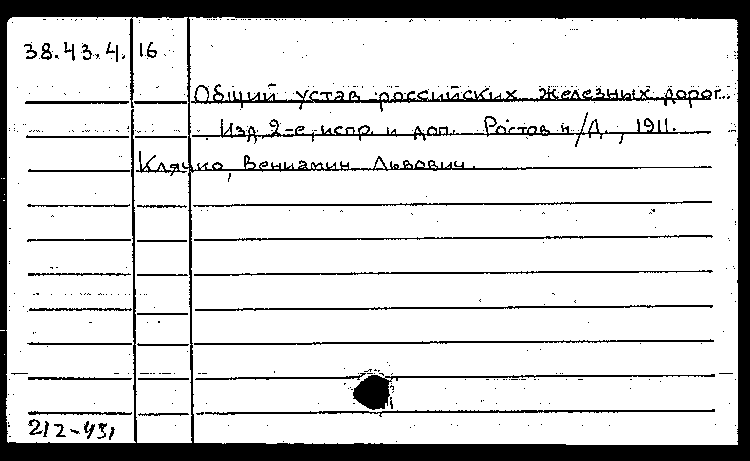 38.43.4.16
Общий устав российских железных дорог.
Изд 2-е, испр. и доп. Ростов н/Д., 1911.
Клячко, Вениамин Львович.
212-431